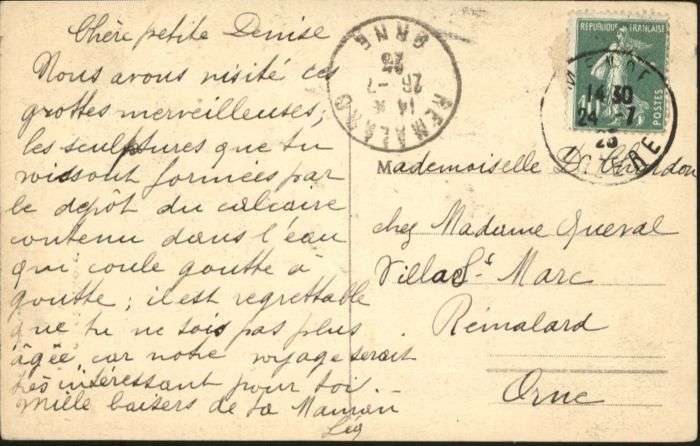 Chère petite Denise
Nous avons visité ces
grottes merveilleuses;
les sculptures que tu
vois sont formées par
le dépôt du calcaire
contenu dans l'eau
qui coule goutte à
goutte; il est regrettable
que tu ne sois pas plus
âgée car notre voyage serait
très intéressant pour toi.
Mille baisers de ta Maman
REMALARD
14 *
26 -7
23
ORNE
REPUBLIQUE FRANÇAISE
10
POSTES
14 30
24 -7
23
Mademoiselle D.
chez Madame Queval
Villa St Marc
Rémalard
Orne